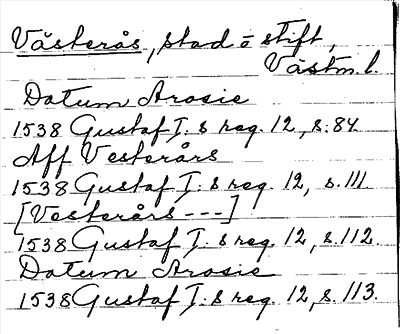 Västerås, stad o stift,
Västm. l.
Datum Arosie
1538 Gustaf I:s reg. 12, s. 84
Aff Vesterårs
1538 Gustaf I:s reg. 12, s. 111.
[Vesterårs ---]
1538 Gustaf I:s reg. 12, s. 112.
Datum Arosie
1538 Gustaf I:s reg. 12, s. 113.